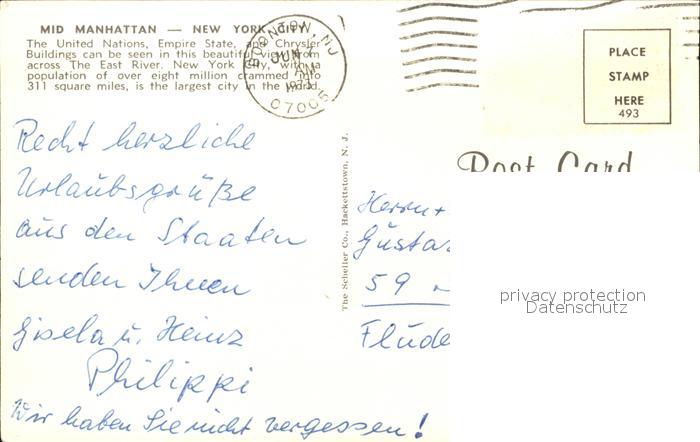 MID MANHATTAN — NEW YORK CITY
The United Nations, Empire State, and Chrysler
Buildings can be seen in this beautiful view from
across The East River. New York City, with a
population of over eight million crammed into
311 square miles, is the largest city in the world.
BOONTON, NJ
JUN
AM
1973
07005
PLACE
STAMP
HERE
493
Post Card
Recht herzliche
Urlaubsgrüße
aus den Staaten
senden Ihnen
Gisela u. Heinz
Philippi
Wir haben Sie nicht vergessen!
The Scheller Co., Hackettstown, N. J.
Herrn +
Gusta
59
Flude
privacy protection
Datenschutz